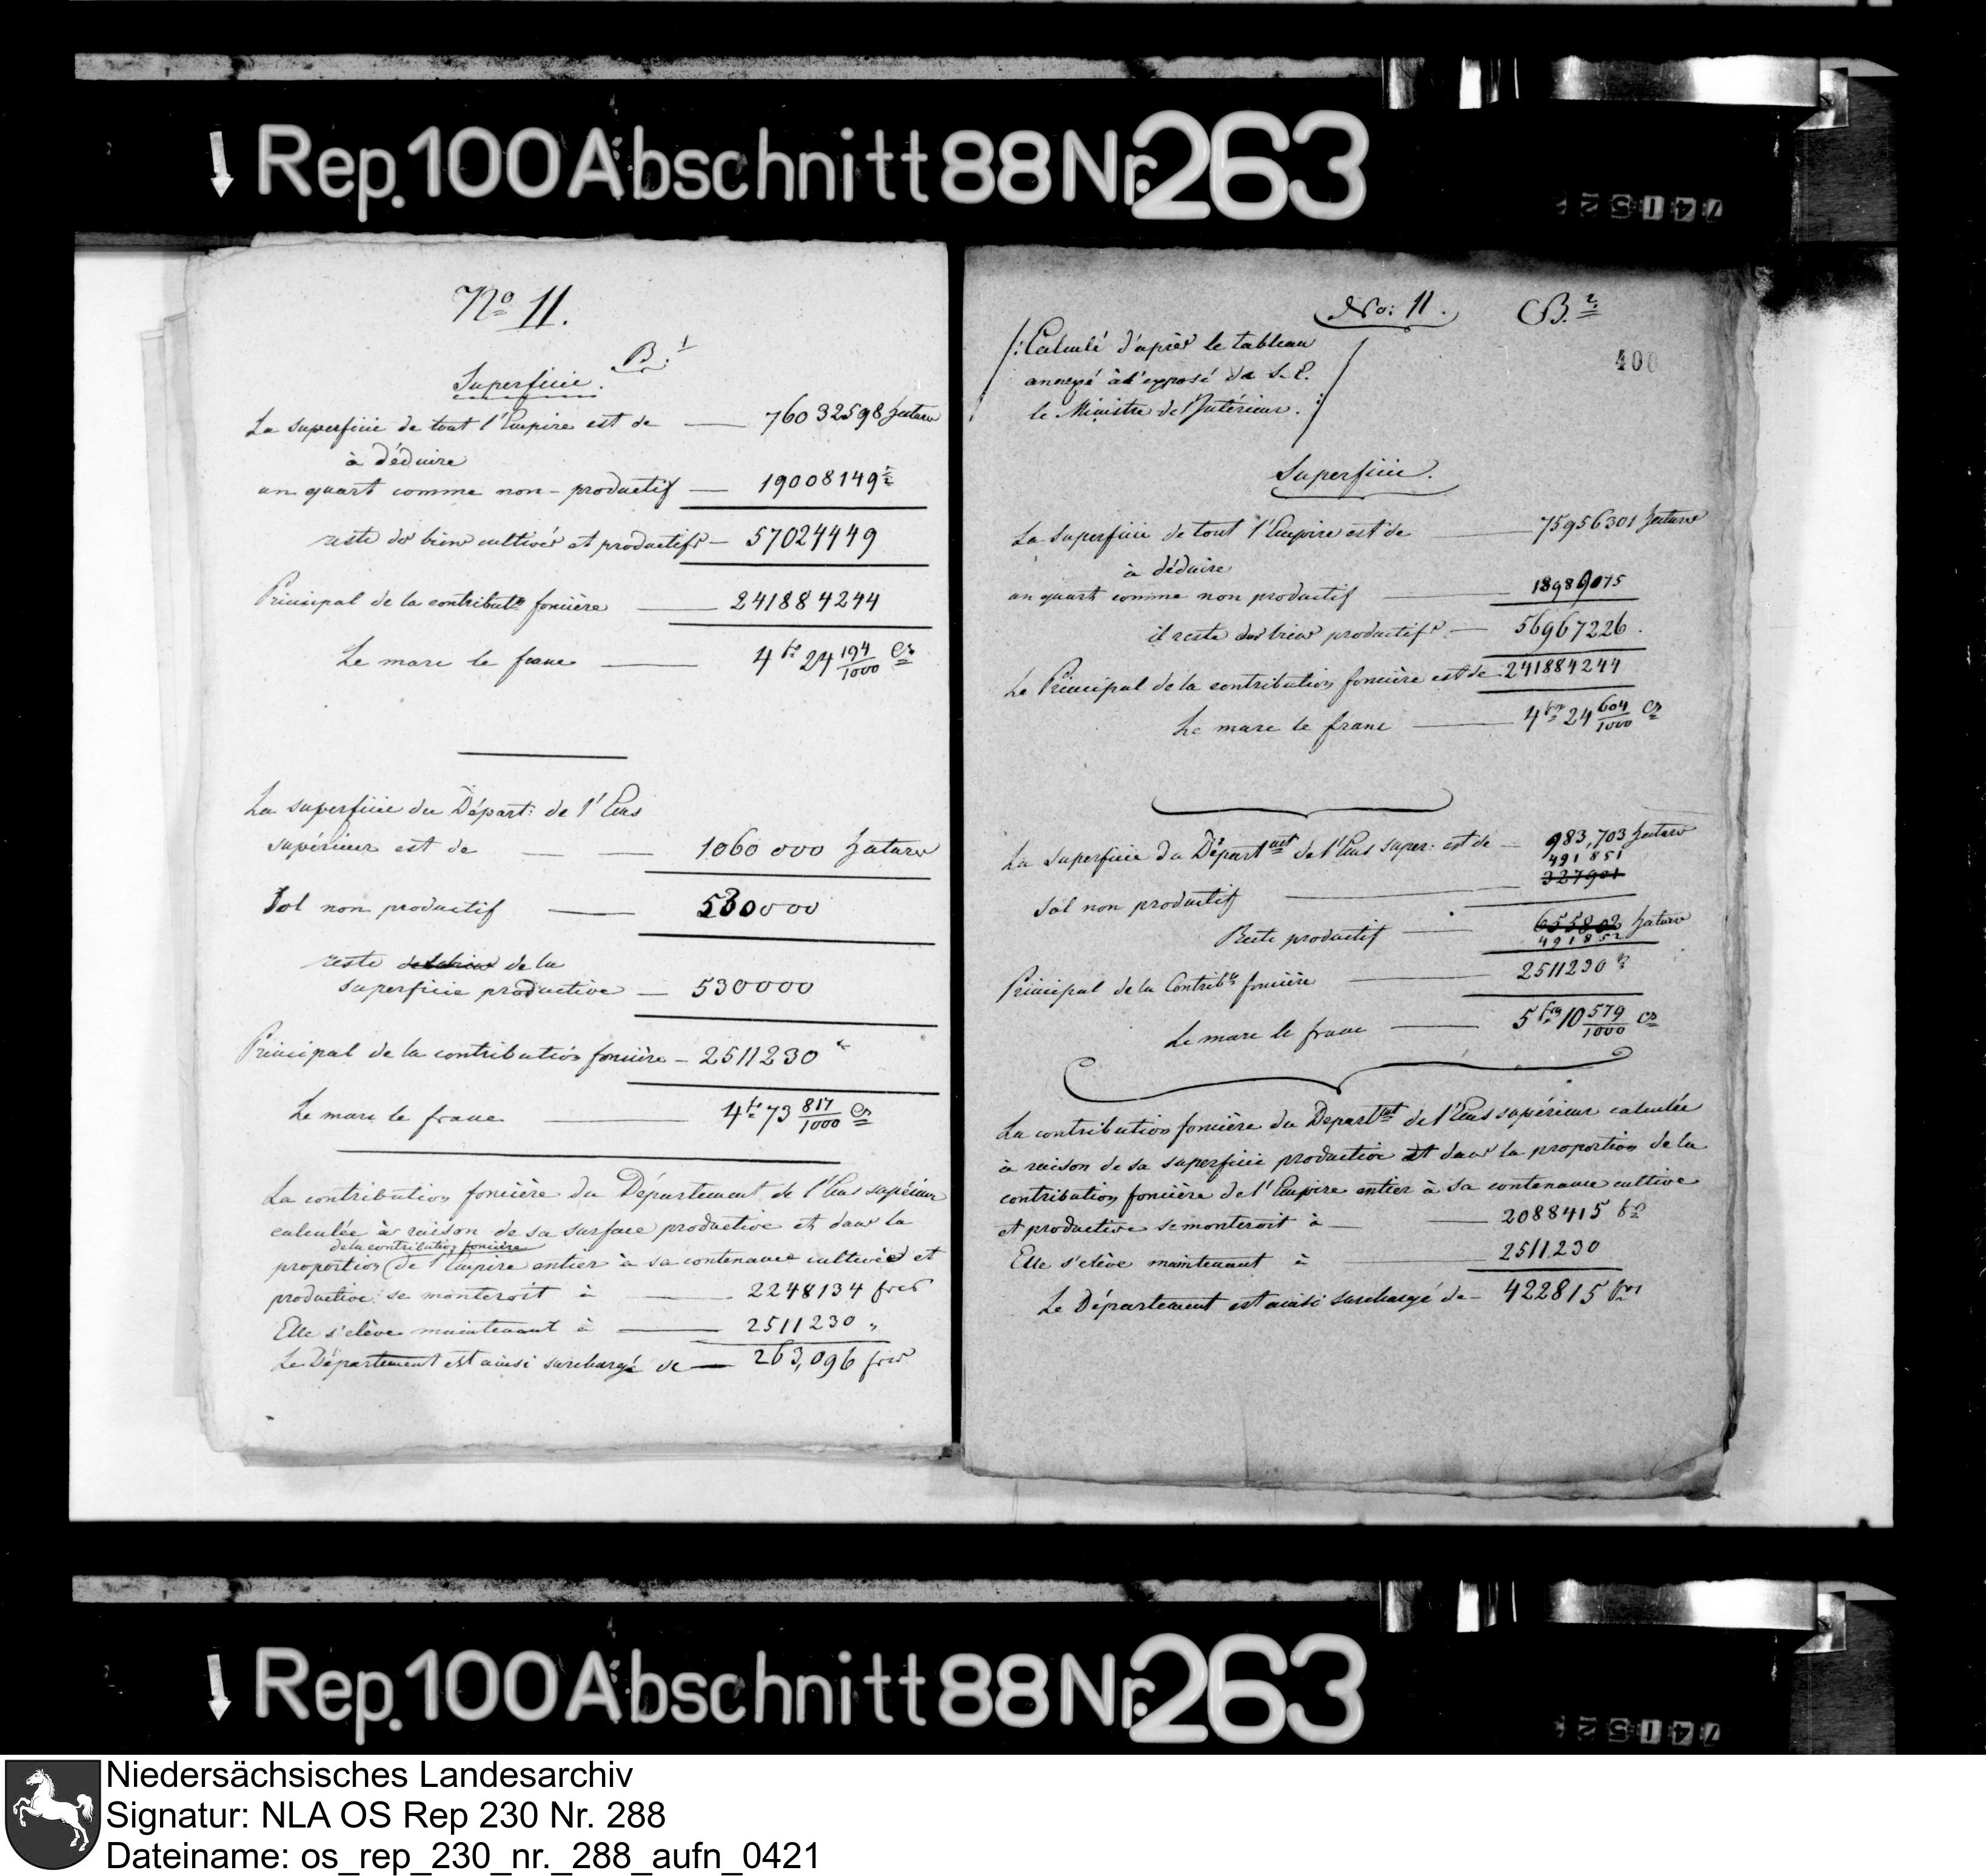 Rep. 100 Abschnitt 88 Nr. 263
74152
No 11.
B.1
Superficie.
La superficie de tout l'Empire est de — 76032598 hectares
à déduire
un quart comme non-productif — 19008149½
reste des biens cultivés et productifs — 57024449
Principal de la contributn foncière — 241884244
Le marc le franc — 4 fs 24 194/1000 Cs
La superficie du Départ: de l'Ems
supérieur est de — — 1060 000 hectares
Sol non productif — 530000
reste de la
superficie productive — 530000
Principal de la contribution foncière — 2511230 fs
Le marc le franc — 4 fs 73 817/1000 Cs
La contribution foncière du Département de l'Ems supérieur
calculée à raison de sa surface productive et dans la
de la contribution foncière
proportion (de l'Empire entier à sa contenance cultivée et
productive se monteroit à — 2248134 frcs
Elle s'elève maintenant à — 2511230 "
Le Département est ainsi surchargé de — 263,096 frcs
No: 11. B.2
400
/: Calculé d'après le tableau
annexé à l'exposé de S. E.
le Ministre de l'Intérieur. :/
Superficie.
La superficie de tout l'Empire est de — 75956301 hectares
à déduire
un quart comme non productif — 18989075
il reste des biens productifs — 56967226.
Le Principal de la contribution foncière est de 241884244
Le marc le franc — 4 frs 24 604/1000 Cs
La superficie du Départmt de l'Ems super: est de — 983,703 hectares
491851
327901
Sol non productif —
Reste productif — 655802 hectares
491852
Principal de la Contribn foncière — 2511230 fs
Le marc le franc — 5 frs 10 579/1000 Cs
La contribution foncière du Departmt de l'Ems supérieur calculée
à raison de sa superficie productive et dans la proportion de la
contribution foncière de l'Empire entier à sa contenance cultivé
et productive se monteroit à — 2088415 fs
Elle s'elève maintenant à — 2511230
Le Département est ainsi surchargé de — 422815 frs
Rep. 100 Abschnitt 88 Nr. 263
74152
Niedersächsisches Landesarchiv
Signatur: NLA OS Rep 230 Nr. 288
Dateiname: os_rep_230_nr._288_aufn_0421